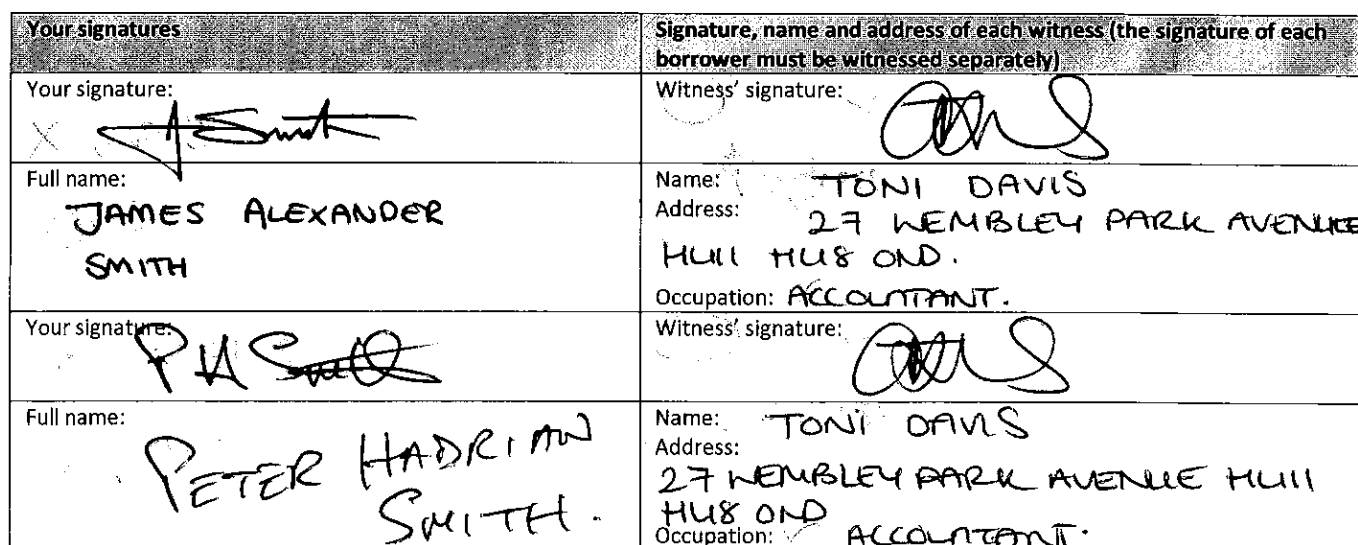 Your signatures
Signature, name and address of each witness (the signature of each
borrower must be witnessed separately)
Your signature:
J Smith
Witness' signature:
Full name:
JAMES ALEXANDER
SMITH
Name: TONI DAVIS
Address:
27 WEMBLEY PARK AVENUE
HULL HU8 0ND.
Occupation: ACCOUNTANT.
Your signature:
P H Smith
Witness' signature:
Full name:
PETER HADRIAN
SMITH.
Name: TONI DAVIS
Address:
27 WEMBLEY PARK AVENUE HULL
HU8 0ND
Occupation: ACCOUNTANT.